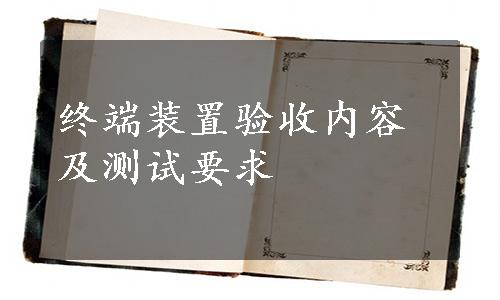 终端装置验收内容
及测试要求